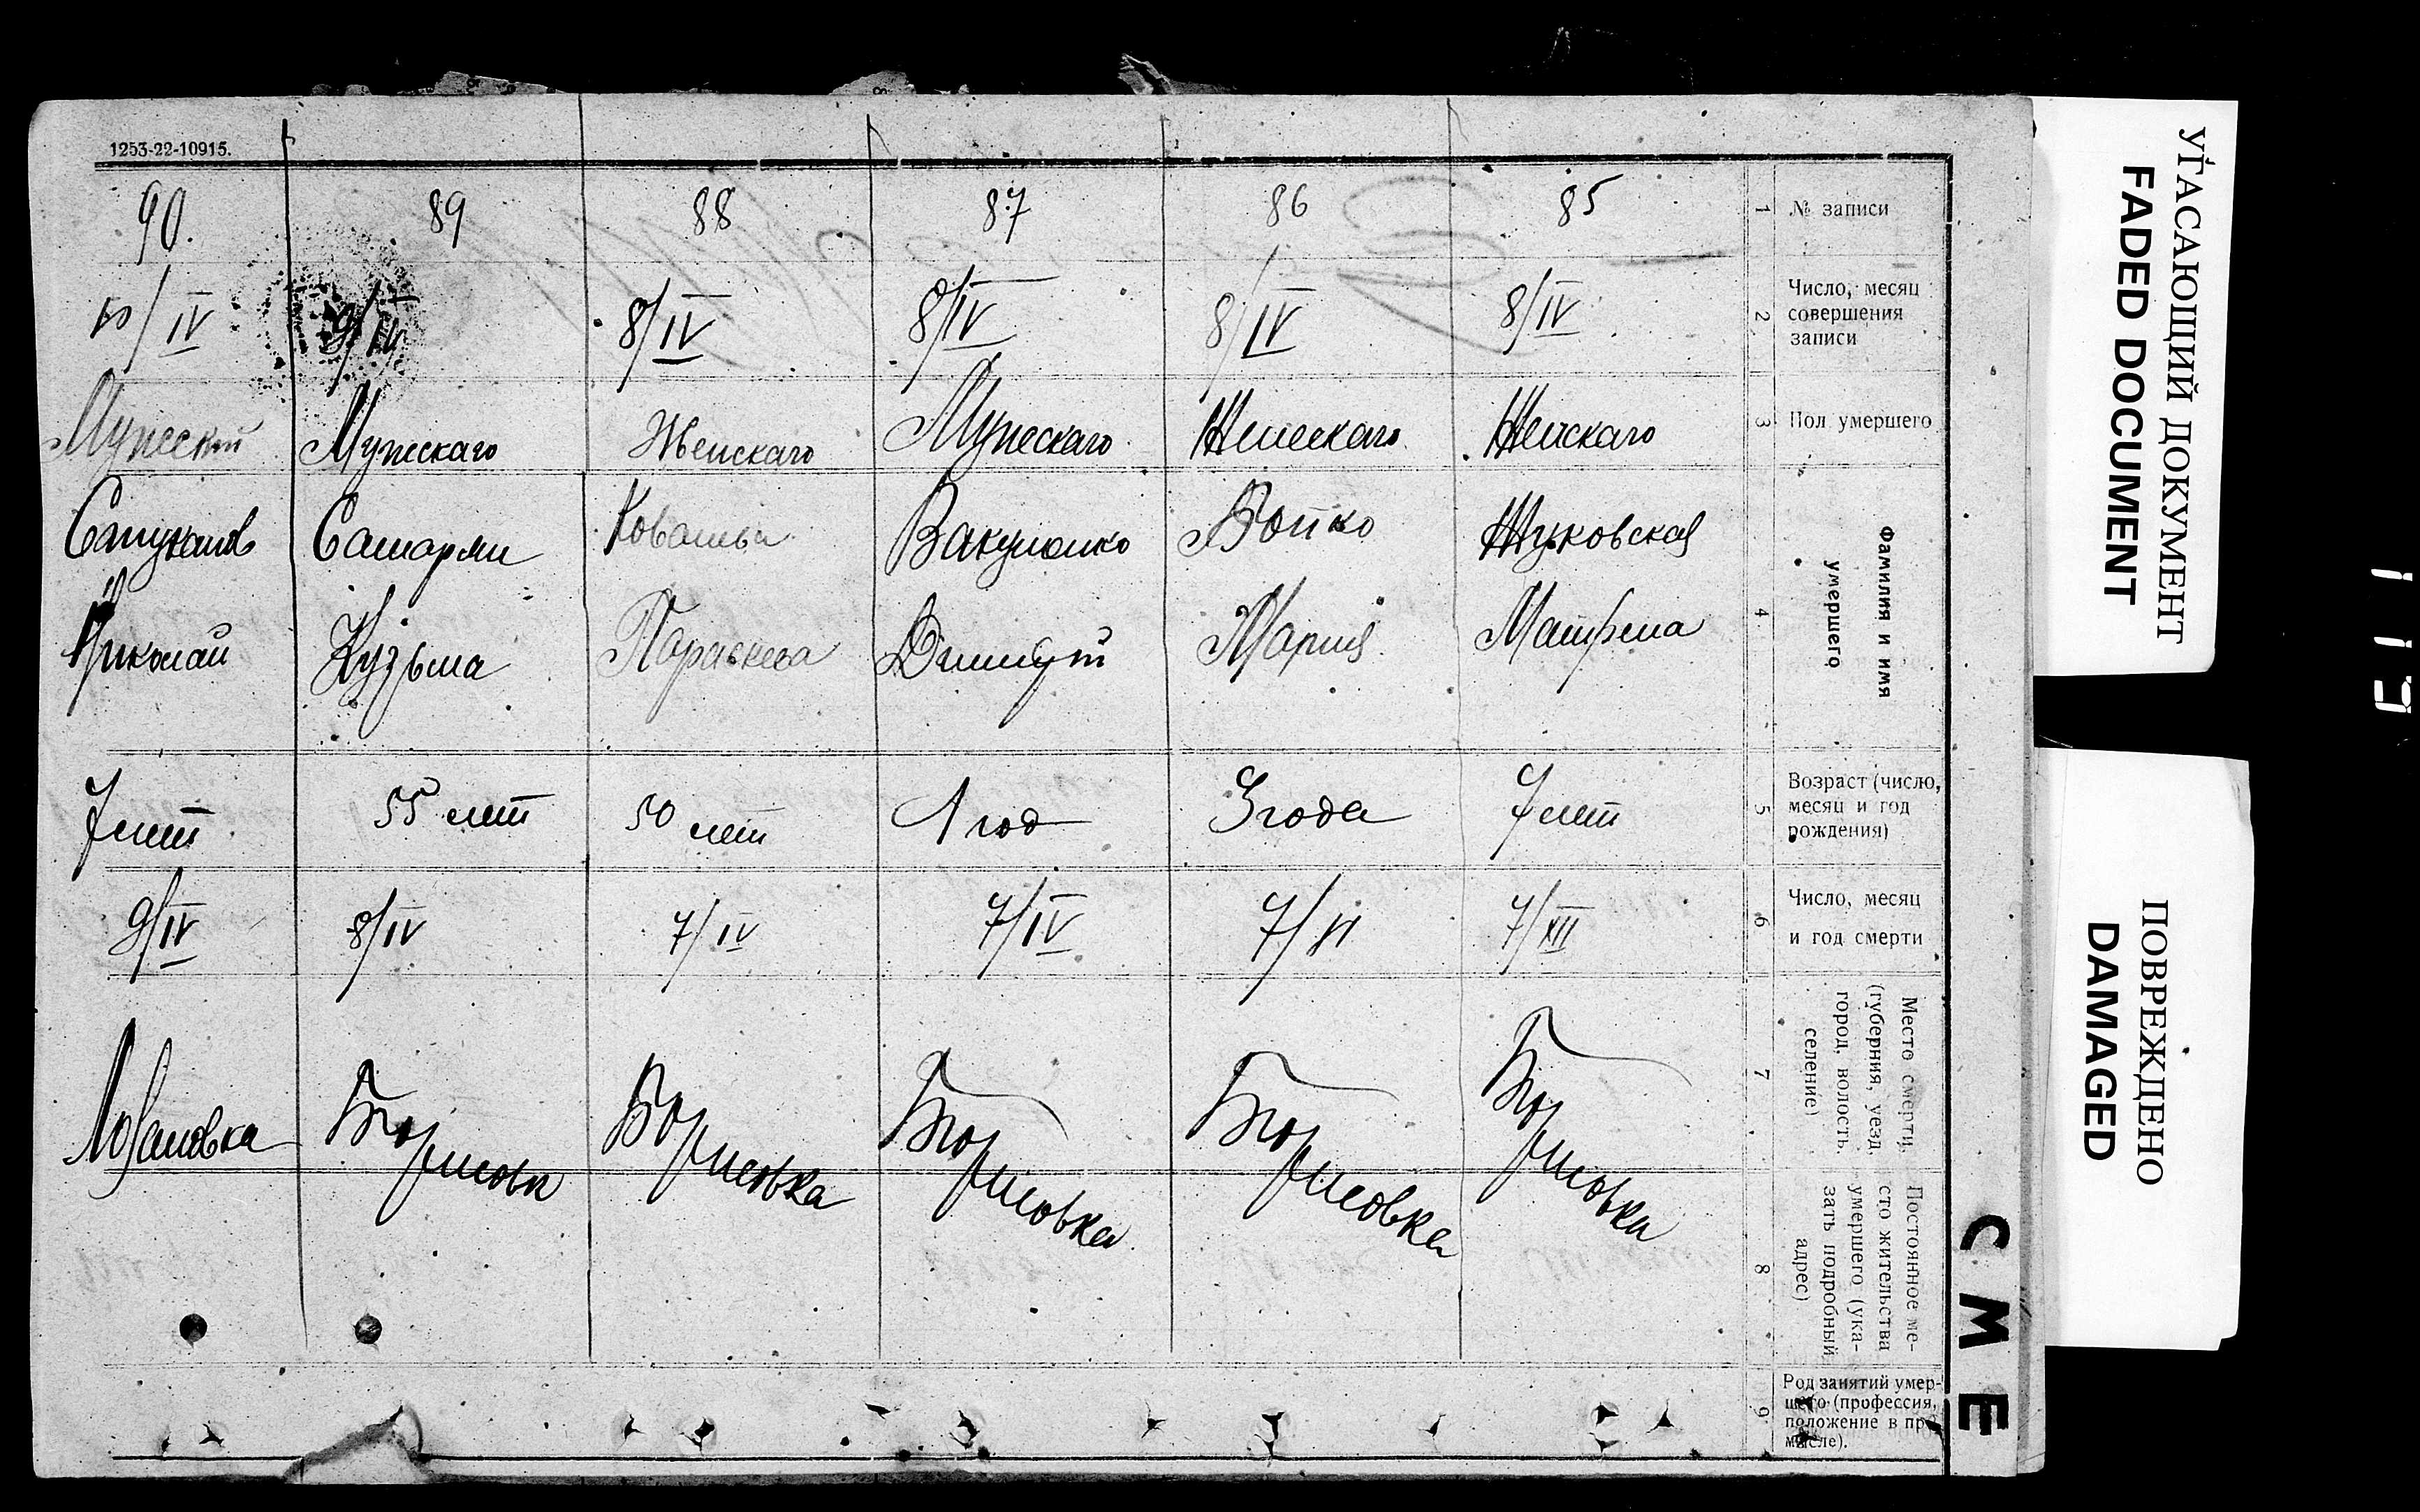 1253-22-10915.
90. 89 88 87 86 85 1 № записи
10/IV 9/IV 8/IV 8/IV 8/IV 8/IV 2 Число, месяц
совершения
записи
Мужескій Мужскаго Женскаго Мужескаго Женскаго Женскаго 3 Пол умершего
Вакуленко Бойко Жуковская 4 Фамилия и имя
умершего
Николай Кузьма Параскева Димитрій Мария Матрена
7 лет 55 лет 50 лет 1 год 3 года 7 лет 5 Возраст (число,
месяц и год
рождения)
9/IV 8/IV 7/IV 7/IV 7/VI 7/XII 6 Число, месяц
и год смерти
Лозановка Борисовк Борисовка Борисовка Борисовка Борисовка 7 Место смерти,
(губерния, уезд,
город, волость,
селение)
8 Постоянное ме-
сто жительства
умершего (ука-
зать подробный
адрес)
9 Род занятий умер-
шего (профессия,
положение в про-
мысле).
УГАСАЮЩИЙ ДОКУМЕНТ
FADED DOCUMENT
ПОВРЕЖДЕНО
DAMAGED
СМЕ